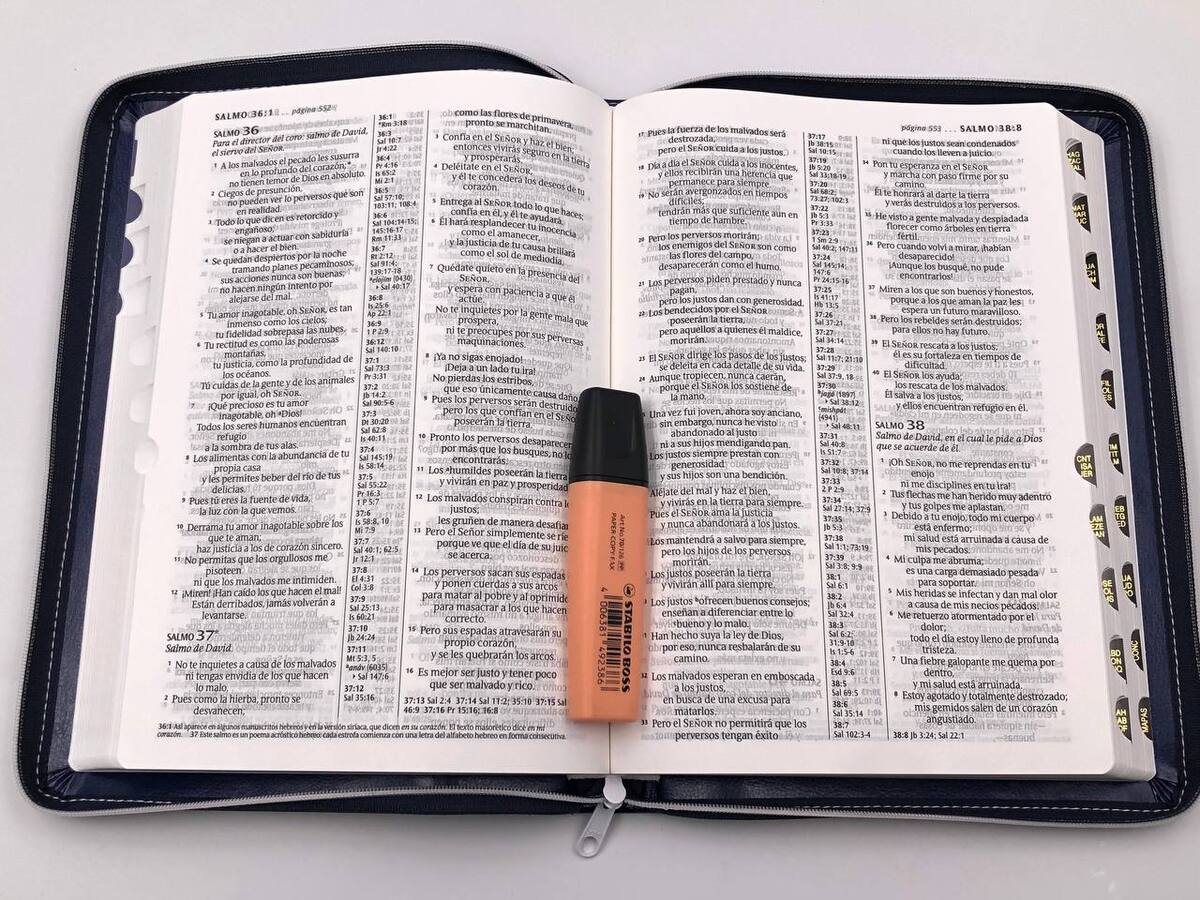 SALMO 36:1 ... página 552
SALMO 36
Para el director del coro: salmo de David,
el siervo del SEÑOR.
1 A los malvados el pecado les susurra
en lo profundo del corazón;*
no tienen temor de Dios en absoluto.
2 Ciegos de presunción,
no pueden ver lo perversos que son
en realidad.
3 Todo lo que dicen es retorcido y
engañoso;
se niegan a actuar con sabiduría
o a hacer el bien.
4 Se quedan despiertos por la noche
tramando planes pecaminosos;
sus acciones nunca son buenas;
no hacen ningún intento por
alejarse del mal.
5 Tu amor inagotable, oh SEÑOR, es tan
inmenso como los cielos;
tu fidelidad sobrepasa las nubes.
6 Tu rectitud es como las poderosas
montañas,
tu justicia, como la profundidad de
los océanos.
Tú cuidas de la gente y de los animales
por igual, oh SEÑOR.
7 ¡Qué precioso es tu amor
inagotable, oh Dios!
Todos los seres humanos encuentran
refugio
a la sombra de tus alas.
8 Los alimentas con la abundancia de tu
propia casa
y les permites beber del río de tus
delicias.
9 Pues tú eres la fuente de vida,
la luz con la que vemos.
10 Derrama tu amor inagotable sobre los
que te aman;
haz justicia a los de corazón sincero.
11 No permitas que los orgullosos me
pisoteen
ni que los malvados me intimiden.
12 ¡Miren! ¡Han caído los que hacen el mal!
Están derribados, jamás volverán a
levantarse.
SALMO 37*
Salmo de David.
1 No te inquietes a causa de los malvados
ni tengas envidia de los que hacen
lo malo.
2 Pues como la hierba, pronto se
desvanecen;
36:1
*Rm 3:18
36:3
Sal 10:7
Jr 4:22
36:4
Pr 4:16
Is 65:2
Mi 2:1
36:5
Sal 57:10;
103:11; 108:4
36:6
Sal 104:14-15;
145:16-17
Rm 11:33
36:7
Rt 2:12
Sal 91:4;
139:17-18
*elojim (0430)
Sal 40:17
36:8
Is 25:6
Ap 22:1
36:9
1 P 2:9
36:12
Sal 140:10
37:1
Sal 73:3
Pr 3:31
37:2
Jb 14:2
Sal 90:5-6
37:3
Dt 30:20
Sal 62:8
Is 40:11
37:4
Sal 145:19
Is 58:14
37:5
Sal 55:22
Pr 16:3
1 P 5:7
37:6
Is 58:8, 10
Mi 7:9
37:7
Sal 40:1; 62:5
Jr 12:1
37:8
Ef 4:31
Col 3:8
37:9
Sal 25:13
Is 60:21
37:10
Jb 24:24
37:11
Mt 5:3, 5
*anav (6035)
Sal 147:6
37:12
Sal 35:16
como las flores de primavera,
pronto se marchitan.
3 Confía en el SEÑOR y haz el bien;
entonces vivirás seguro en la tierra
y prosperarás.
4 Deléitate en el SEÑOR,
y él te concederá los deseos de tu
corazón.
5 Entrega al SEÑOR todo lo que haces;
confía en él, y él te ayudará.
6 Él hará resplandecer tu inocencia
como el amanecer,
y la justicia de tu causa brillará
como el sol de mediodía.
7 Quédate quieto en la presencia del
SEÑOR,
y espera con paciencia a que él
actúe.
No te inquietes por la gente mala que
prospera,
ni te preocupes por sus perversas
maquinaciones.
8 ¡Ya no sigas enojado!
¡Deja a un lado tu ira!
No pierdas los estribos,
que eso únicamente causa daño.
9 Pues los perversos serán destruido
pero los que confían en el SEÑOR
poseerán la tierra.
10 Pronto los perversos desaparecer
por más que los busques, no lo
encontrarás.
11 Los *humildes poseerán la tierra
y vivirán en paz y prosperidad
12 Los malvados conspiran contra l
justos;
les gruñen de manera desafian
13 Pero el Señor simplemente se ríe
porque ve que el día de su juic
se acerca.
14 Los perversos sacan sus espadas
y ponen cuerdas a sus arcos
para matar al pobre y al oprimido
para masacrar a los que hacen
correcto.
15 Pero sus espadas atravesarán su
propio corazón,
y se les quebrarán los arcos.
16 Es mejor ser justo y tener poco
que ser malvado y rico.
37:13 Sal 2:4 37:14 Sal 11:2; 35:10 37:15 Sal
46:9 37:16 Pr 15:16; 16:8
36:1 Así aparece en algunos manuscritos hebreos y en la versión siríaca, que dicen en su corazón. El texto masorético dice en mi
corazón. 37 Este salmo es un poema acróstico hebreo; cada estrofa comienza con una letra del alfabeto hebreo en forma consecutiva.
Art.No.70/126
PAPER COPY FAX
STABILO BOSS
4 006381 492386
página 553 ... SALMO 38:8
17 Pues la fuerza de los malvados será
destrozada,
pero el SEÑOR cuida a los justos.
18 Día a día el SEÑOR cuida a los inocentes,
y ellos recibirán una herencia que
permanece para siempre.
19 No serán avergonzados en tiempos
difíciles;
tendrán más que suficiente aun en
tiempo de hambre.
20 Pero los perversos morirán;
los enemigos del SEÑOR son como
las flores del campo,
desaparecerán como el humo.
21 Los perversos piden prestado y nunca
pagan,
pero los justos dan con generosidad.
22 Los bendecidos por el SEÑOR
poseerán la tierra,
pero aquellos a quienes él maldice,
morirán.
23 El SEÑOR dirige los pasos de los justos;
se deleita en cada detalle de su vida.
24 Aunque tropiecen, nunca caerán,
porque el SEÑOR los sostiene de
la mano.
Una vez fui joven, ahora soy anciano,
sin embargo, nunca he visto
abandonado al justo
ni a sus hijos mendigando pan.
Los justos siempre prestan con
generosidad
y sus hijos son una bendición.
Aléjate del mal y haz el bien,
y vivirás en la tierra para siempre.
Pues el SEÑOR ama la justicia
y nunca abandonará a los justos.
Los mantendrá a salvo para siempre,
pero los hijos de los perversos
morirán.
Los justos poseerán la tierra
y vivirán allí para siempre.
Los justos *ofrecen buenos consejos;
enseñan a diferenciar entre lo
*bueno y lo malo.
Han hecho suya la ley de Dios,
por eso, nunca resbalarán de su
camino.
32 Los malvados esperan en emboscada
a los justos,
en busca de una excusa para
matarlos.
33 Pero el SEÑOR no permitirá que los
perversos tengan éxito
37:17
Jb 38:15
Sal 10:15
37:19
Jb 5:20
Sal 33:18-19
37:20
Sal 68:2;
73:27; 102:3
37:22
Jb 5:3
Pr 3:33
37:23
1 Sm 2:9
Sal 40:2; 147:11
37:24
Sal 145:14;
147:6
Pr 24:15-16
37:25
Is 41:17
Hb 13:5
37:26
Sal 37:21
37:27
Sal 34:14
37:28
Sal 11:7; 21:10
37:29
Sal 37:9, 18
37:30
*jagá (1897)
Sal 38:12
*mishpát
(4941)
Sal 48:11
37:31
Sal 40:8
Is 51:7
37:32
Sal 10:8; 37:14
37:33
2 P 2:9
37:34
Sal 27:14; 37:9
37:35
Jb 5:3
37:38
Sal 1:1; 73:19
37:39
Sal 3:8; 9:9
38:1
Sal 6:1
38:2
Jb 6:4
Sal 32:4
38:3
Sal 6:2;
31:9-10
Is 1:5-6
38:4
Esd 9:6
38:5
Sal 69:5
38:6
Sal 35:14
38:7
Sal 102:3-4
ni que los justos sean condenados
cuando los lleven a juicio.
34 Pon tu esperanza en el SEÑOR
y marcha con paso firme por su
camino.
Él te honrará al darte la tierra
y verás destruidos a los perversos.
35 He visto a gente malvada y despiadada
florecer como árboles en tierra
fértil.
36 Pero cuando volví a mirar, ¡habían
desaparecido!
¡Aunque los busqué, no pude
encontrarlos!
37 Miren a los que son buenos y honestos,
porque a los que aman la paz les
espera un futuro maravilloso.
38 Pero los rebeldes serán destruidos;
para ellos no hay futuro.
39 El SEÑOR rescata a los justos;
él es su fortaleza en tiempos de
dificultad.
40 El SEÑOR los ayuda;
los rescata de los malvados.
Él salva a los justos,
y ellos encuentran refugio en él.
SALMO 38
Salmo de David, en el cual le pide a Dios
que se acuerde de él.
1 ¡Oh SEÑOR, no me reprendas en tu
enojo
ni me disciplines en tu ira!
2 Tus flechas me han herido muy adentro
y tus golpes me aplastan.
3 Debido a tu enojo, todo mi cuerpo
está enfermo;
mi salud está arruinada a causa de
mis pecados.
4 Mi culpa me abruma;
es una carga demasiado pesada
para soportar.
5 Mis heridas se infectan y dan mal olor
a causa de mis necios pecados.
6 Me retuerzo atormentado por el
dolor;
todo el día estoy lleno de profunda
tristeza.
7 Una fiebre galopante me quema por
dentro,
y mi salud está arruinada.
8 Estoy agotado y totalmente destrozado;
mis gemidos salen de un corazón
angustiado.
38:8 Jb 3:24; Sal 22:1
CNT
ISA
JER
MAPAS